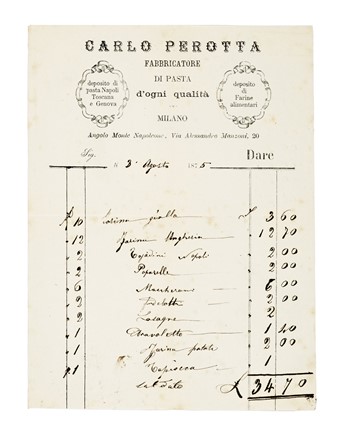 CARLO PEROTTA
FABBRICATORE
DI PASTA
d'ogni qualità
MILANO
deposito di
pasta Napoli
Toscana
e Genova
deposito
di
Farine
alimentari
Angolo Monte Napoleone, Via Alessandro Manzoni, 20
Sig. Dare
3 Agosto 1875
10 gialla 3 60
12 Farina Ungheria 12 70
2 Napoli 2 00
2 Paparelle 2 00
6 Maccheroni 6 00
2 2 00
2 Lasagne 2
1 1 40
1 Farina patate 2 00
1 Tapiocca 1
Saldato £ 34 70